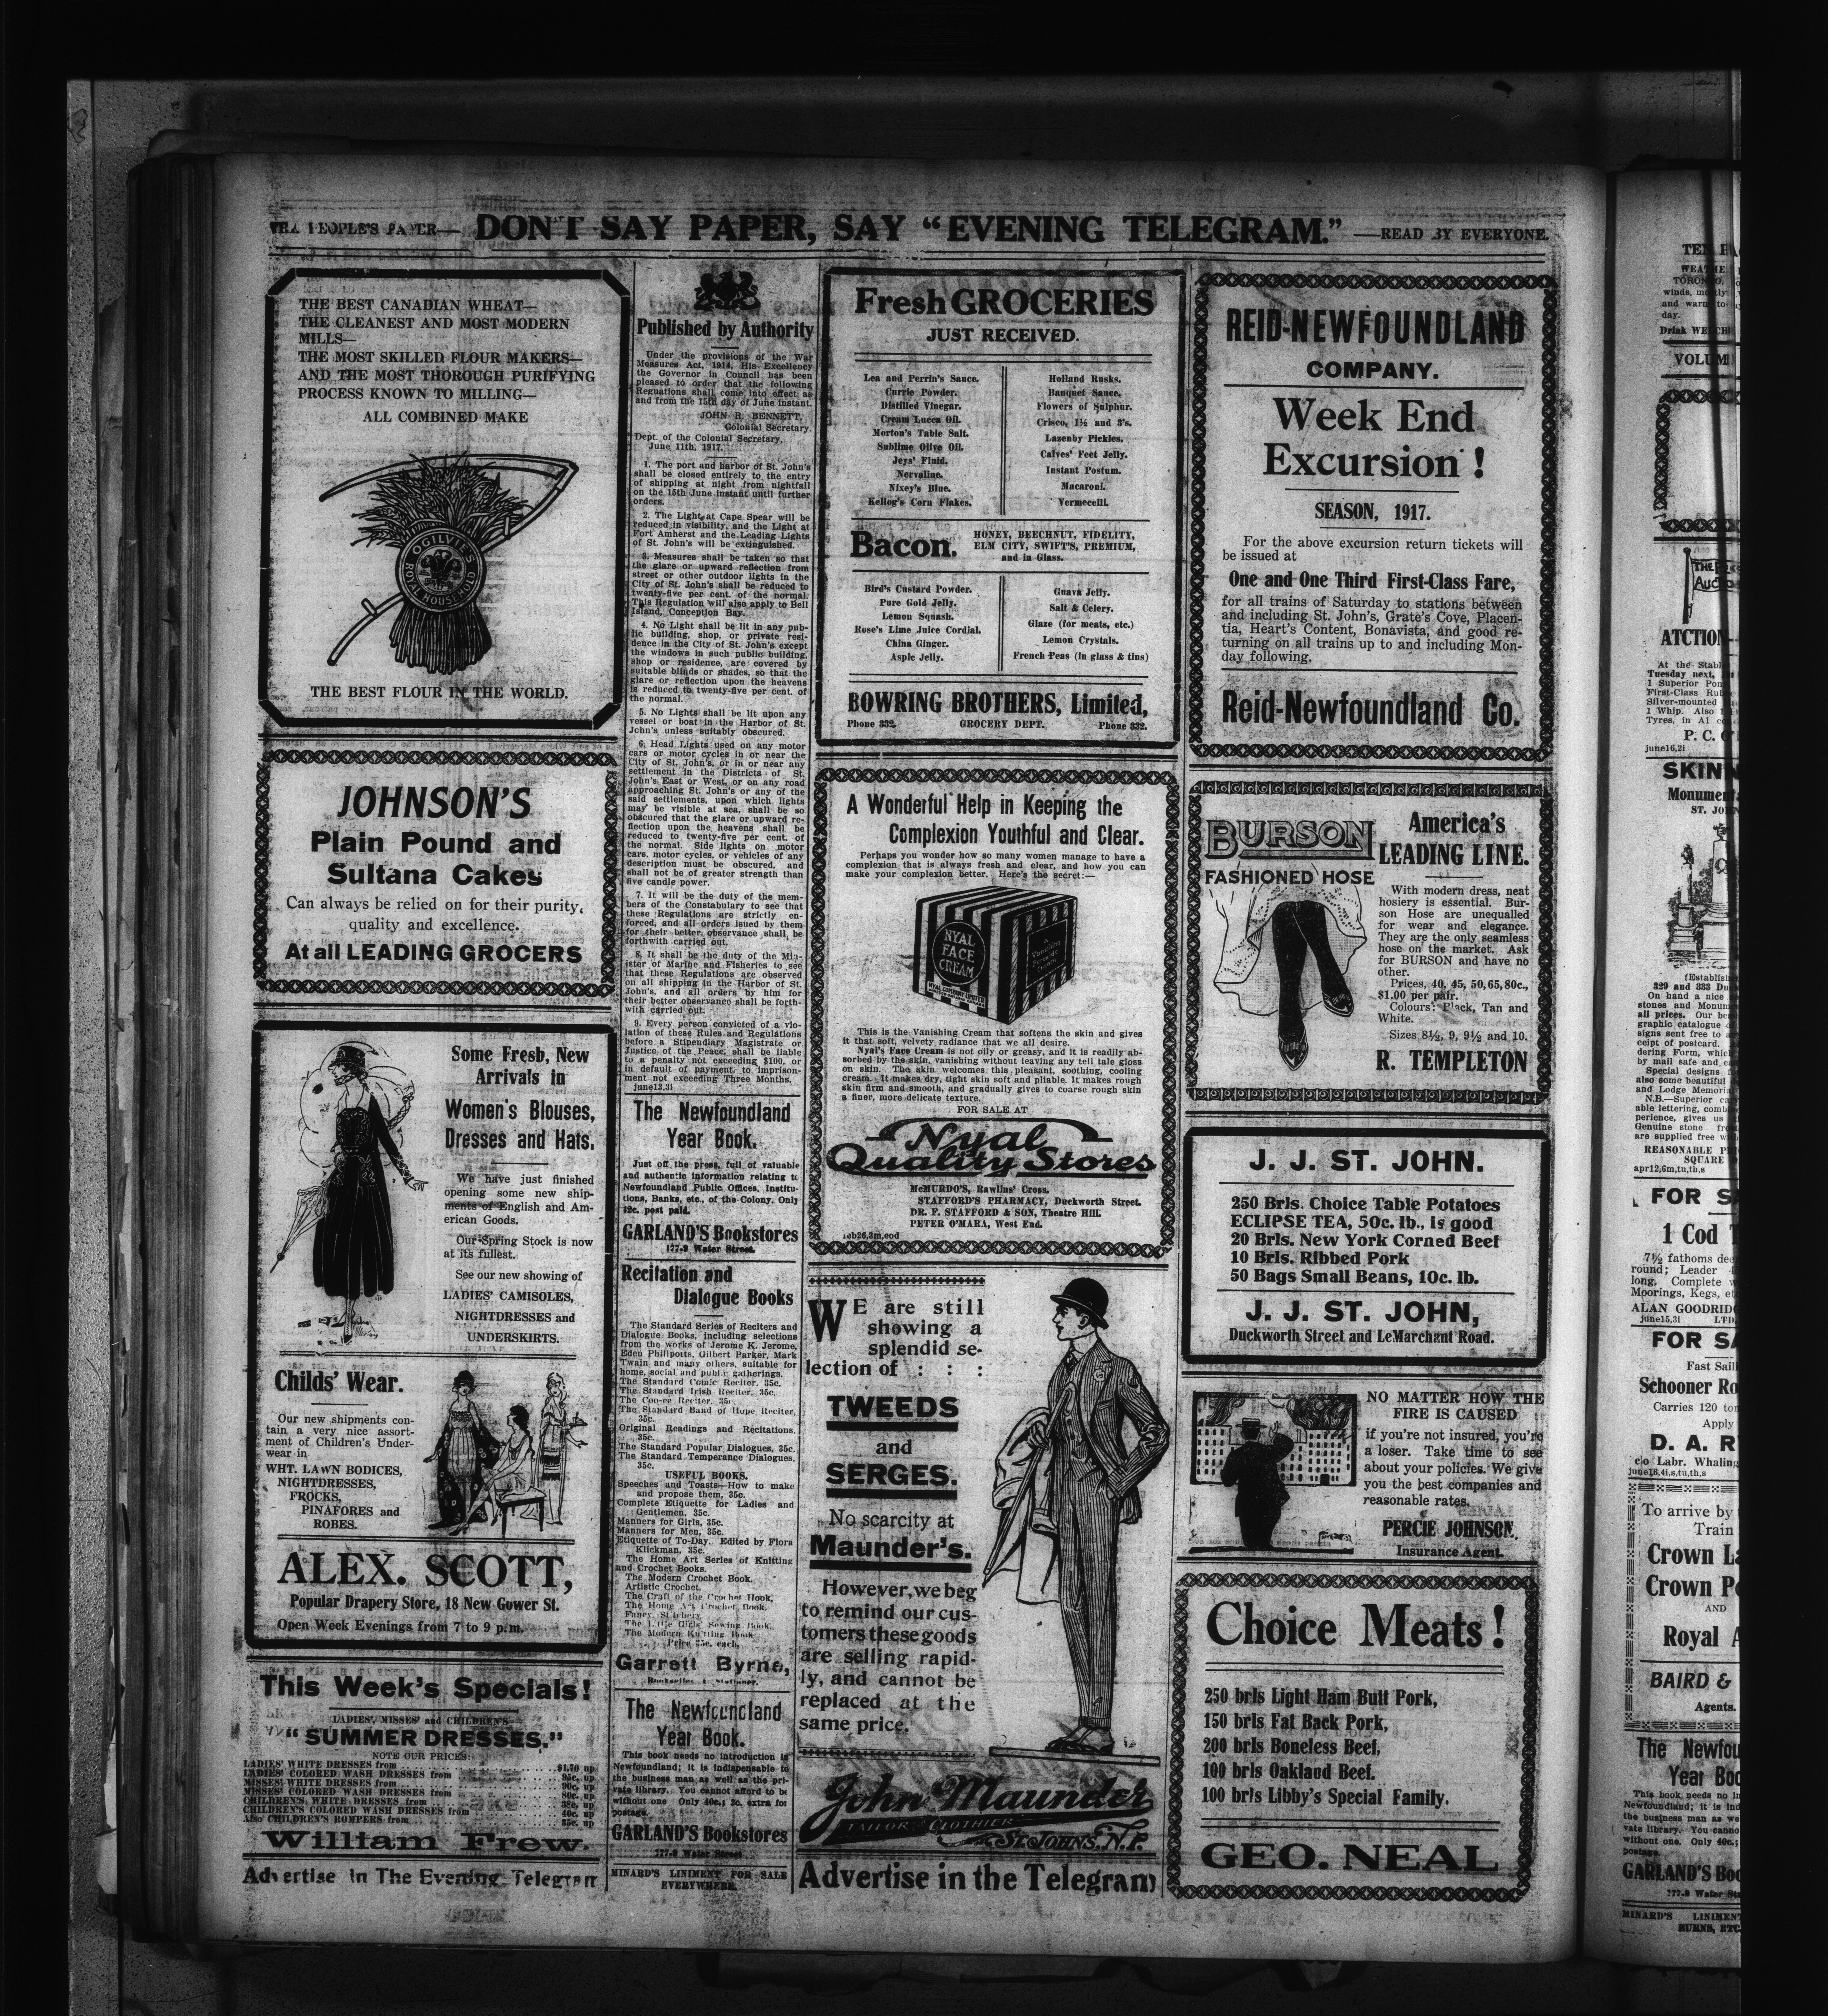 THE PEOPLE'S PAPER— DON'T SAY PAPER, SAY "EVENING TELEGRAM." —READ BY EVERYONE.
THE BEST CANADIAN WHEAT—
THE CLEANEST AND MOST MODERN
MILLS—
THE MOST SKILLED FLOUR MAKERS—
AND THE MOST THOROUGH PURIFYING
PROCESS KNOWN TO MILLING—
ALL COMBINED MAKE
OGILVIE'S
ROYAL HOUSEHOLD
THE BEST FLOUR IN THE WORLD.
JOHNSON'S
Plain Pound and
Sultana Cakes
Can always be relied on for their purity,
quality and excellence.
At all LEADING GROCERS
Some Fresh, New
Arrivals in
Women's Blouses,
Dresses and Hats.
We have just finished
opening some new ship-
ments of English and Am-
erican Goods.
Our Spring Stock is now
at its fullest.
See our new showing of
LADIES' CAMISOLES,
NIGHTDRESSES and
UNDERSKIRTS.
Childs' Wear.
Our new shipments con-
tain a very nice assort-
ment of Children's Under-
wear in
WHT. LAWN BODICES,
NIGHTDRESSES,
FROCKS,
PINAFORES and
ROBES.
ALEX. SCOTT,
Popular Drapery Store, 18 New Gower St.
Open Week Evenings from 7 to 9 p.m.
This Week's Specials!
LADIES', MISSES' and CHILDREN'S
"SUMMER DRESSES."
NOTE OUR PRICES:
LADIES' WHITE DRESSES from $1.70 up
LADIES' COLORED WASH DRESSES from 95c. up
MISSES' WHITE DRESSES from 90c. up
MISSES' COLORED WASH DRESSES from 80c. up
CHILDREN'S WHITE DRESSES from 38c. up
CHILDREN'S COLORED WASH DRESSES from 40c. up
Also CHILDREN'S ROMPERS from 35c. up
William Frew.
Advertise in The Evening Telegram
Published by Authority
Under the provisions of the War
Measures Act, 1914, His Excellency
the Governor in Council has been
pleased to order that the following
Reguations shall come into effect as
and from the 15th day of June instant.
JOHN R. BENNETT,
Colonial Secretary.
Dept. of the Colonial Secretary,
June 11th, 1917.
1. The port and harbor of St. John's
shall be closed entirely to the entry
of shipping at night from nightfall
on the 15th June instant until further
orders.
2. The Light at Cape Spear will be
reduced in visibility, and the Light at
Fort Amherst and the Leading Lights
of St. John's will be extinguished.
3. Measures shall be taken so that
the glare or upward reflection from
street or other outdoor lights in the
City of St. John's shall be reduced to
twenty-five per cent. of the normal.
This Regulation will also apply to Bell
Island, Conception Bay.
4. No Light shall be lit in any pub-
lic building, shop, or private resi-
dence in the City of St. John's except
the windows in such public building,
shop or residence, are covered by
suitable blinds or shades, so that the
glare or reflection upon the heavens
is reduced to twenty-five per cent. of
the normal.
5. No Lights shall be lit upon any
vessel or boat in the Harbor of St.
John's unless suitably obscured.
6. Head Lights used on any motor
cars or motor cycles in or near the
City of St. John's, or in or near any
settlement in the Districts of St.
John's East or West, or on any road
approaching St. John's or any of the
said settlements, upon which lights
may be visible at sea, shall be so
obscured that the glare or upward re-
flection upon the heavens shall be
reduced to twenty-five per cent. of
the normal. Side lights on motor
cars, motor cycles, or vehicles of any
description must be obscured, and
shall not be of greater strength than
five candle power.
7. It will be the duty of the mem-
bers of the Constabulary to see that
these Regulations are strictly en-
forced, and all orders isued by them
for their better observance shall be
forthwith carried out.
8. It shall be the duty of the Min-
ister of Marine and Fisheries to see
that these Regulations are observed
on all shipping in the Harbor of St.
John's, and all orders by him for
their better observance shall be forth-
with carried out.
9. Every person convicted of a vio-
lation of these Rules and Regulations
before a Stipendiary Magistrate or
Justice of the Peace, shall be liable
to a penalty not exceeding $100, or
in default of payment, to imprison-
ment not exceeding Three Months.
june13,3i
The Newfoundland
Year Book.
Just off the press, full of valuable
and authentic information relating to
Newfoundland Public Offices, Institu-
tions, Banks, etc., of the Colony. Only
42c. post paid.
GARLAND'S Bookstores
177-9 Water Street.
Recitation and
Dialogue Books
The Standard Series of Reciters and
Dialogue Books, including selections
from the works of Jerome K. Jerome,
Eden Phillpotts, Gilbert Parker, Mark
Twain and many others, suitable for
home, social and public gatherings.
The Standard Comic Reciter, 35c.
The Standard Irish Reciter, 35c.
The Coo-ee Reciter, 35c.
The Standard Band of Hope Reciter,
35c.
Original Readings and Recitations,
35c.
The Standard Popular Dialogues, 35c.
The Standard Temperance Dialogues,
35c.
USEFUL BOOKS.
Speeches and Toasts—How to make
and propose them, 35c.
Complete Etiquette for Ladies and
Gentlemen, 35c.
Manners for Girls, 35c.
Manners for Men, 35c.
Etiquette of To-Day. Edited by Flora
Klickman, 35c.
The Home Art Series of Knitting
and Crochet Books.
The Modern Crochet Book.
Artistic Crochet.
The Craft of the Crochet Hook.
The Home Art Crochet Book.
Fancy Stitchery
The Little Girls' Sewing Book.
The Modern Knitting Book
Price 35c. each.
Garrett Byrne,
Bookseller & Stationer.
The Newfoundland
Year Book.
This book needs no introduction in
Newfoundland; it is indispensable to
the business man as well as the pri-
vate library. You cannot afford to be
without one Only 40c.; 2c. extra for
postage.
GARLAND'S Bookstores
177-9 Water Street
MINARD'S LINIMENT FOR SALE
EVERYWHERE.
Fresh GROCERIES
JUST RECEIVED.
Lea and Perrin's Sauce.
Currie Powder.
Distilled Vinegar.
Cream Lucca Oil.
Morton's Table Salt.
Sublime Olive Oil.
Jeys' Fluid.
Nervaline.
Nixey's Blue.
Kellog's Corn Flakes.
Holland Rusks.
Banquet Sauce.
Flowers of Sulphur.
Crisco, 1½ and 3's.
Lazenby Pickles.
Calves' Feet Jelly.
Instant Postum.
Macaroni.
Vermecelli.
Bacon.
HONEY, BEECHNUT, FIDELITY,
ELM CITY, SWIFT'S, PREMIUM,
and in Glass.
Bird's Custard Powder.
Pure Gold Jelly.
Lemon Squash.
Rose's Lime Juice Cordial.
China Ginger.
Aspic Jelly.
Guava Jelly.
Salt & Celery.
Glaze (for meats, etc.)
Lemon Crystals.
French Peas (in glass & tins)
BOWRING BROTHERS, Limited,
Phone 332. GROCERY DEPT. Phone 332.
A Wonderful Help in Keeping the
Complexion Youthful and Clear.
Perhaps you wonder how so many women manage to have a
complexion that is always fresh and clear, and how you can
make your complexion better. Here's the secret:—
NYAL
FACE
CREAM
This is the Vanishing Cream that softens the skin and gives
it that soft, velvety radiance that we all desire.
Nyal's Face Cream is not oily or greasy, and it is readily ab-
sorbed by the skin, vanishing without leaving any tell tale gloss
on skin. The skin welcomes this pleasant, soothing, cooling
cream. It makes dry, tight skin soft and pliable. It makes rough
skin firm and smooth, and gradually gives to coarse rough skin
a finer, more delicate texture.
FOR SALE AT
Nyal
Quality Stores
McMURDO'S, Rawlins' Cross.
STAFFORD'S PHARMACY, Duckworth Street.
DR. F. STAFFORD & SON, Theatre Hill.
PETER O'MARA, West End.
feb26,3m,eod
WE are still
showing a
splendid se-
lection of : : :
TWEEDS
and
SERGES.
No scarcity at
Maunder's.
However, we beg
to remind our cus-
tomers these goods
are selling rapid-
ly, and cannot be
replaced at the
same price.
John Maunder
TAILOR & CLOTHIER
ST. JOHNS, N.F.
Advertise in the Telegram
REID-NEWFOUNDLAND
COMPANY.
Week End
Excursion!
SEASON, 1917.
For the above excursion return tickets will
be issued at
One and One Third First-Class Fare,
for all trains of Saturday to stations between
and including St. John's, Grate's Cove, Placen-
tia, Heart's Content, Bonavista, and good re-
turning on all trains up to and including Mon-
day following.
Reid-Newfoundland Co.
BURSON
FASHIONED HOSE
America's
LEADING LINE.
With modern dress, neat
hosiery is essential. Bur-
son Hose are unequalled
for wear and elegance.
They are the only seamless
hose on the market. Ask
for BURSON and have no
other.
Prices, 40, 45, 50, 65, 80c.,
$1.00 per pair.
Colours: Black, Tan and
White.
Sizes 8½, 9, 9½ and 10.
R. TEMPLETON
J. J. ST. JOHN.
250 Brls. Choice Table Potatoes
ECLIPSE TEA, 50c. lb., is good
20 Brls. New York Corned Beef
10 Brls. Ribbed Pork
50 Bags Small Beans, 10c. lb.
J. J. ST. JOHN,
Duckworth Street and LeMarchant Road.
NO MATTER HOW THE
FIRE IS CAUSED
if you're not insured, you're
a loser. Take time to see
about your policies. We give
you the best companies and
reasonable rates.
PERCIE JOHNSON,
Insurance Agent.
Choice Meats!
250 brls Light Ham Butt Pork,
150 brls Fat Back Pork,
200 brls Boneless Beef,
100 brls Oakland Beef.
100 brls Libby's Special Family.
GEO. NEAL
TORONTO,
and warm
day.
Drink
At the
Tuesday next,
1 Superior
1 Whip. Also
Tyres, in A1
june16,2i
ST.
329 and 333
On hand a nice
all prices. Our
graphic catalogue
signs sent free to
by mail safe and
Special designs
also some beautiful
N.B.—Superior
Genuine stone
are supplied free
SQUARE
apr12,6m,tu,th,s
FOR
1 Cod
7½ fathoms
round; Leader
long. Complete
Moorings, Kegs,
june15,3i
FOR
Fast
Schooner
Carries 120
Apply
D. A.
c|o Labr. Whaling
june16,4i,s,tu,th,s
To arrive by
Train
Crown
Crown
AND
Royal
BAIRD &
Agents.
The
This book needs no
the business man as
vate library. You
without one. Only 40c.;
postage.
GARLAND'S
177-9 Water
MINARD'S LINIMENT
BURNS, ETC.